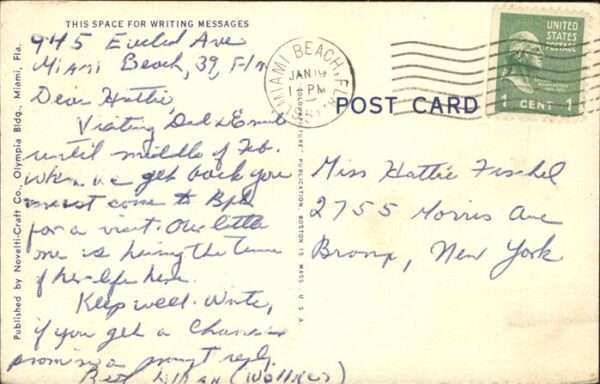 THIS SPACE FOR WRITING MESSAGES
945 Euclid Ave
Miami Beach, 39, Fla
Dear Hattie
Visiting Dad &
until middle of Feb.
When we get back you
must come to Bpt
for a visit. Our little
one is having the time
of her life here.
Keep well. Write,
if you get a chance
promising a prompt reply.
(Wallnes)
Published by Novelti-Craft Co., Olympia Bldg., Miami, Fla.
MIAMI BEACH, FLA.
JAN 19
1 PM
PUBLICATION BOSTON 15 MASS. U.S.A.
POST CARD
UNITED
STATES
POSTAGE
1 CENT 1
Miss Hattie Fischel
2755 Morris Ave
Bronx, New York